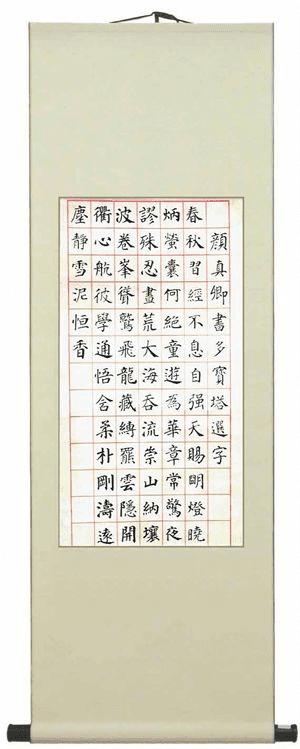 顏真卿書多寶塔選字
春秋習經不息自强天賜明燈曉
炳螢囊何絕童遊為華章常驚夜
謬殊忍畫荒大海吞流崇山納壤
波卷峯聳驚飛龍藏縛羂雲隱開
衢心航彼學通悟舍柔朴剛濤遠
塵靜雪泥恒香